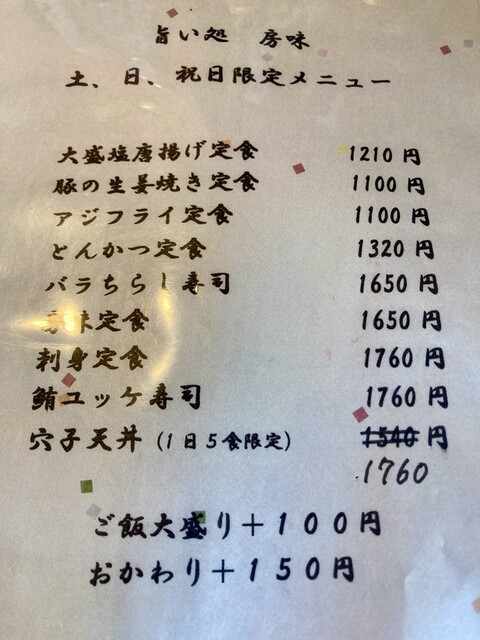 旨い処 房味
土、日、祝日限定メニュー
大盛塩唐揚げ定食 1210 円
豚の生姜焼き定食 1100 円
アジフライ定食 1100 円
とんかつ定食 1320 円
バラちらし寿司 1650 円
味定食 1650 円
刺身定食 1760 円
鮪ユッケ寿司 1760 円
穴子天丼 (1日5食限定) 1540 円
1760
ご飯大盛り+100円
おかわり+150円